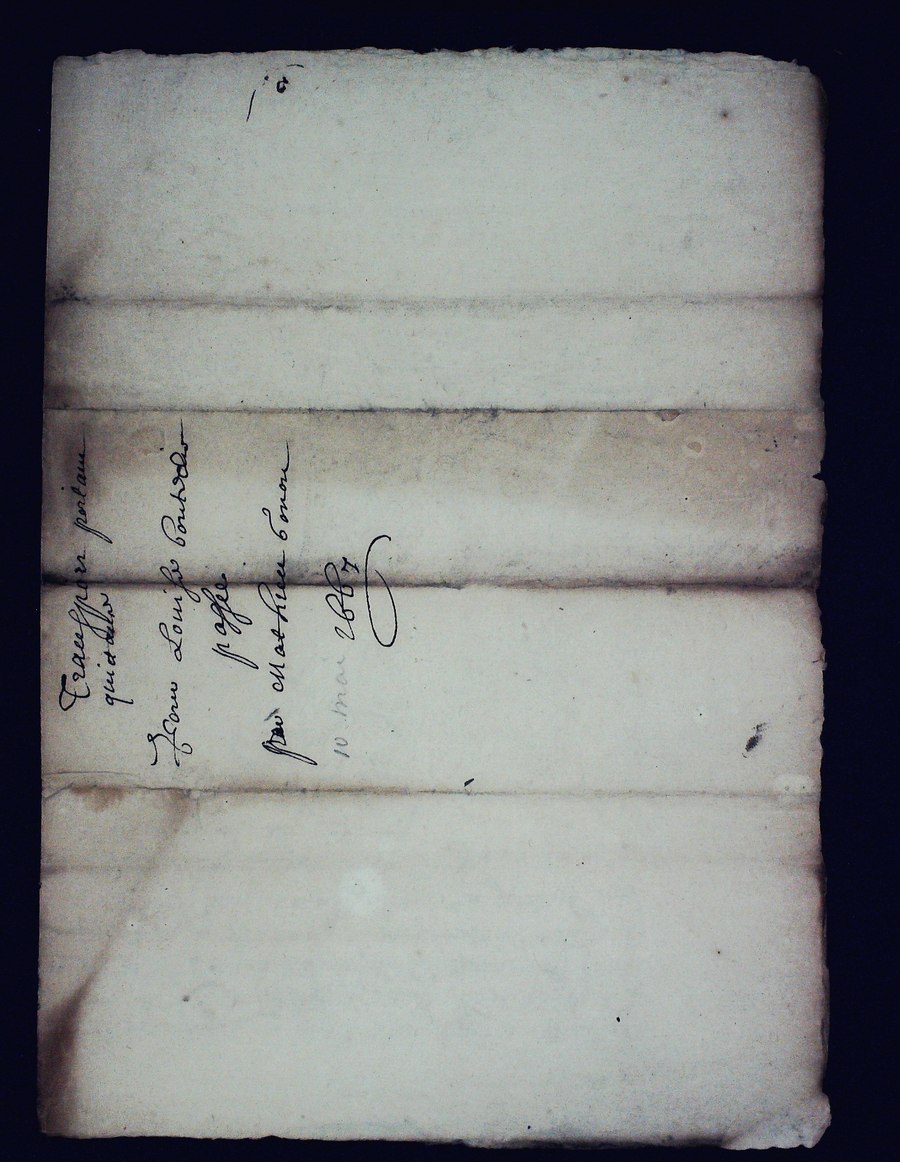 Transport portant
quictance
pour Louise
passé
par Mathieu
10 mai 1667